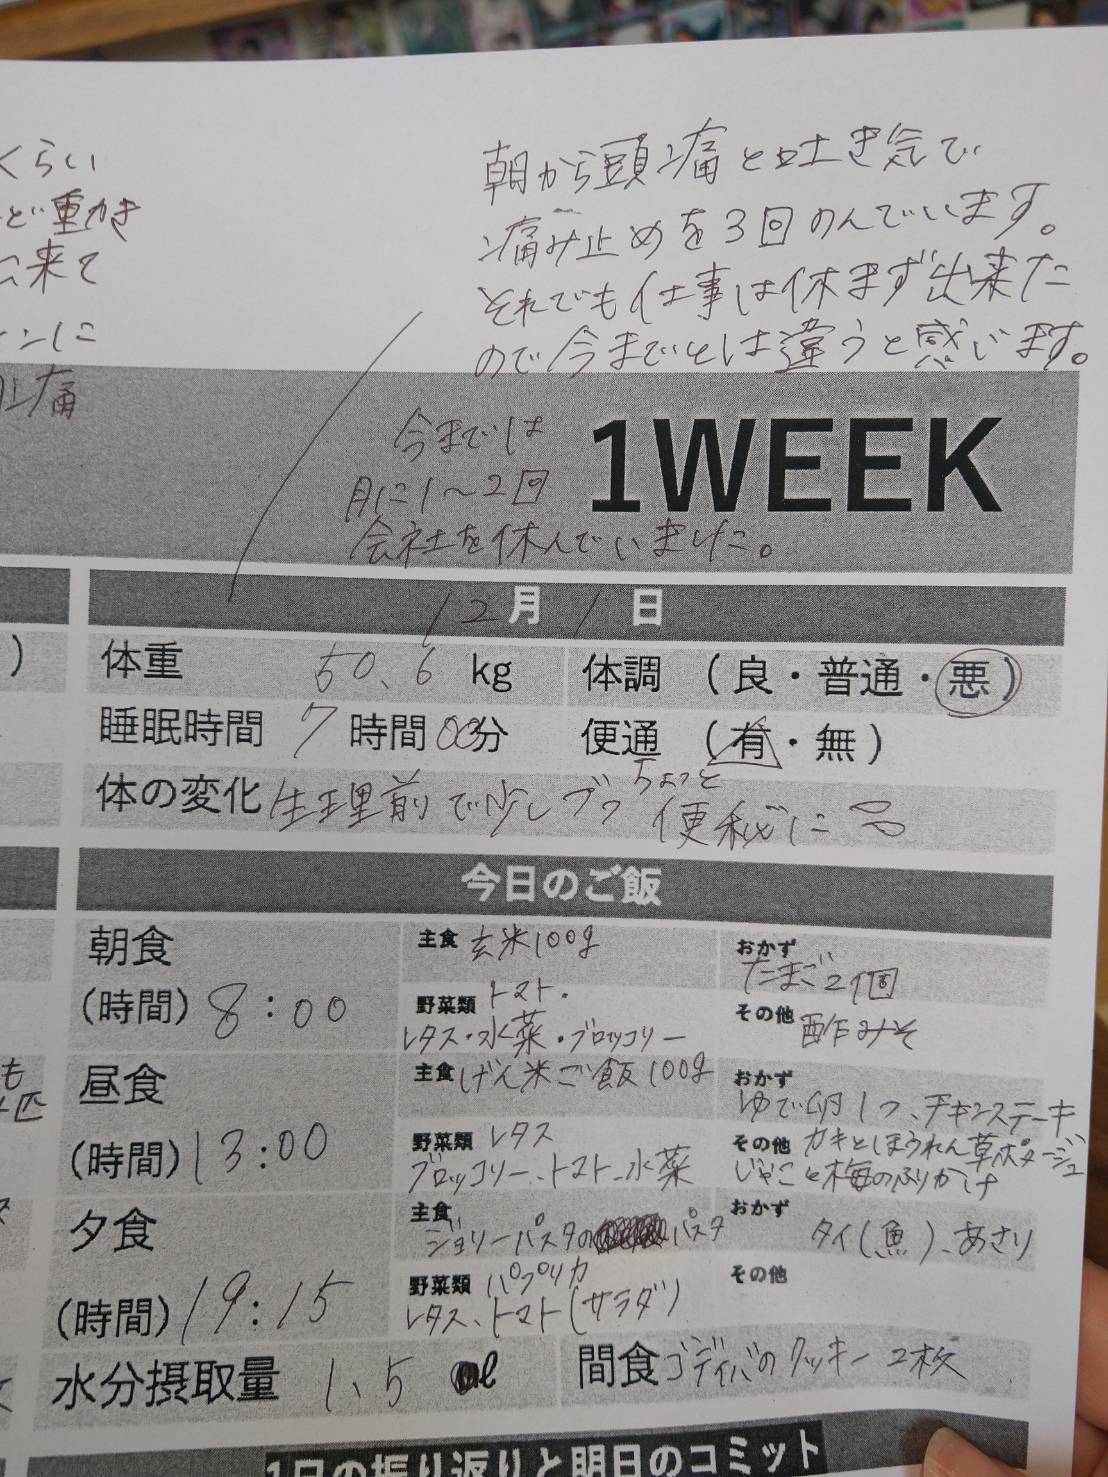 くらい
ど重かき
来て
ンに
痛
朝から頭痛と吐き気で
痛み止めを3回のんでいます。
それでも仕事は休まず出来た
ので今までとは違うと感じます。
今までは
月に1〜2回
会社を休んでいました。
1WEEK
12月1日
体重 50.6 kg 体調 (良・普通・悪)
睡眠時間 7時間00分 便通 (有・無)
ちょっと
体の変化 生理前で少し 便秘に
今日のご飯
朝食
(時間) 8:00
主食 玄米100g
おかず
たまご2個
野菜類 トマト・
レタス・水菜・ブロッコリー
その他 酢みそ
昼食
(時間) 13:00
主食 げん米ご飯100g
おかず
ゆで卵1つ、チキンステーキ
野菜類 レタス
ブロッコリー、トマト、水菜
その他 カキとほうれん草ポタージュ
じゃこと梅のふりかけ
夕食
(時間) 19:15
主食
ジョリーパスタのパスタ
おかず
タイ(魚)、あさり
野菜類 パプリカ
レタス、トマト(サラダ)
その他
水分摂取量 1.5 ℓ 間食 ゴディバのクッキー 2枚
1日の振り返りと明日のコミット